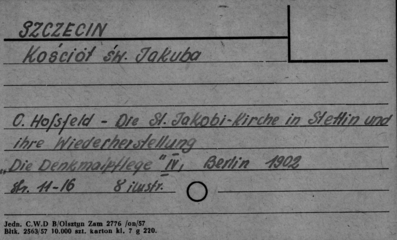 SZCZECIN
Kościół św. Jakuba
C. Hofsfeld - Die St. Jakobi-Kirche in Stettin und
ihre Wiederherstellung
„Die Denkmalpflege" IV, Berlin 1902
str. 11-16 8 ilustr.
Jedn. C.W.D B/Olsztyn Zam 2776 /on/57
Bltk. 2563/57 10.000 szt. karton kl. 7 g 220.